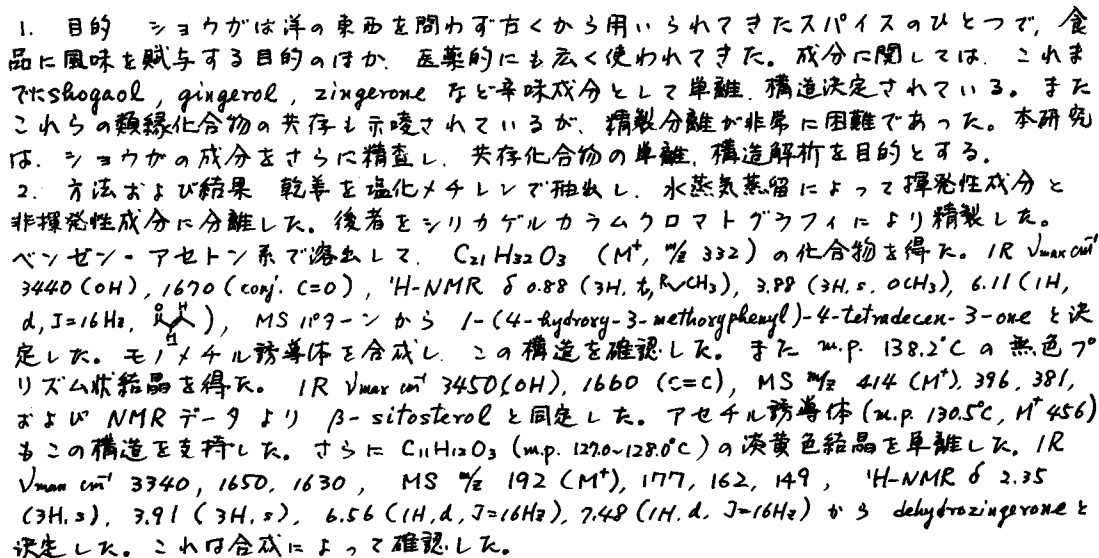 1. 目的　ショウガは洋の東西を問わず古くから用いられてきたスパイスのひとつで、食
品に風味を賦与する目的のほか、医薬的にも広く使われてきた。成分に関しては、これま
でにshogaol, gingerol, zingerone など辛味成分として単離、構造決定されている。また
これらの類縁化合物の共存も示唆されているが、精製分離が非常に困難であった。本研究
は、ショウガの成分をさらに精査し、共存化合物の単離、構造解析を目的とする。
2. 方法および結果　乾姜を塩化メチレンで抽出し、水蒸気蒸留によって揮発性成分と
非揮発性成分に分離した。後者をシリカゲルカラムクロマトグラフィにより精製した。
ベンゼン-アセトン系で溶出して、C21H32O3 (M+, m/z 332) の化合物を得た。IR νmax cm-1
3440 (OH), 1670 (conj. C=O), 1H-NMR δ 0.88 (3H, t, R CH3), 3.88 (3H, s, OCH3), 6.11 (1H,
d, J=16Hz, R H H), MS パターンから 1-(4-hydroxy-3-methoxyphenyl)-4-tetradecen-3-one と決
定した。モノメチル誘導体を合成し、この構造を確認した。また m.p. 138.2°C の無色プ
リズム状結晶を得た。IR νmax cm-1 3450(OH), 1660 (C=C), MS m/z 414 (M+), 396, 381,
および NMR データより β-sitosterol と同定した。アセチル誘導体 (m.p. 130.5°C, M+ 456)
もこの構造を支持した。さらに C11H12O3 (m.p. 127.0~128.0°C) の淡黄色結晶を単離した。IR
νmax cm-1 3340, 1650, 1630, MS m/z 192 (M+), 177, 162, 149, 1H-NMR δ 2.35
(3H, s), 3.91 (3H, s), 6.56 (1H, d, J=16Hz), 7.48 (1H, d, J=16Hz) から dehydrozingerone と
決定した。これは合成によって確認した。